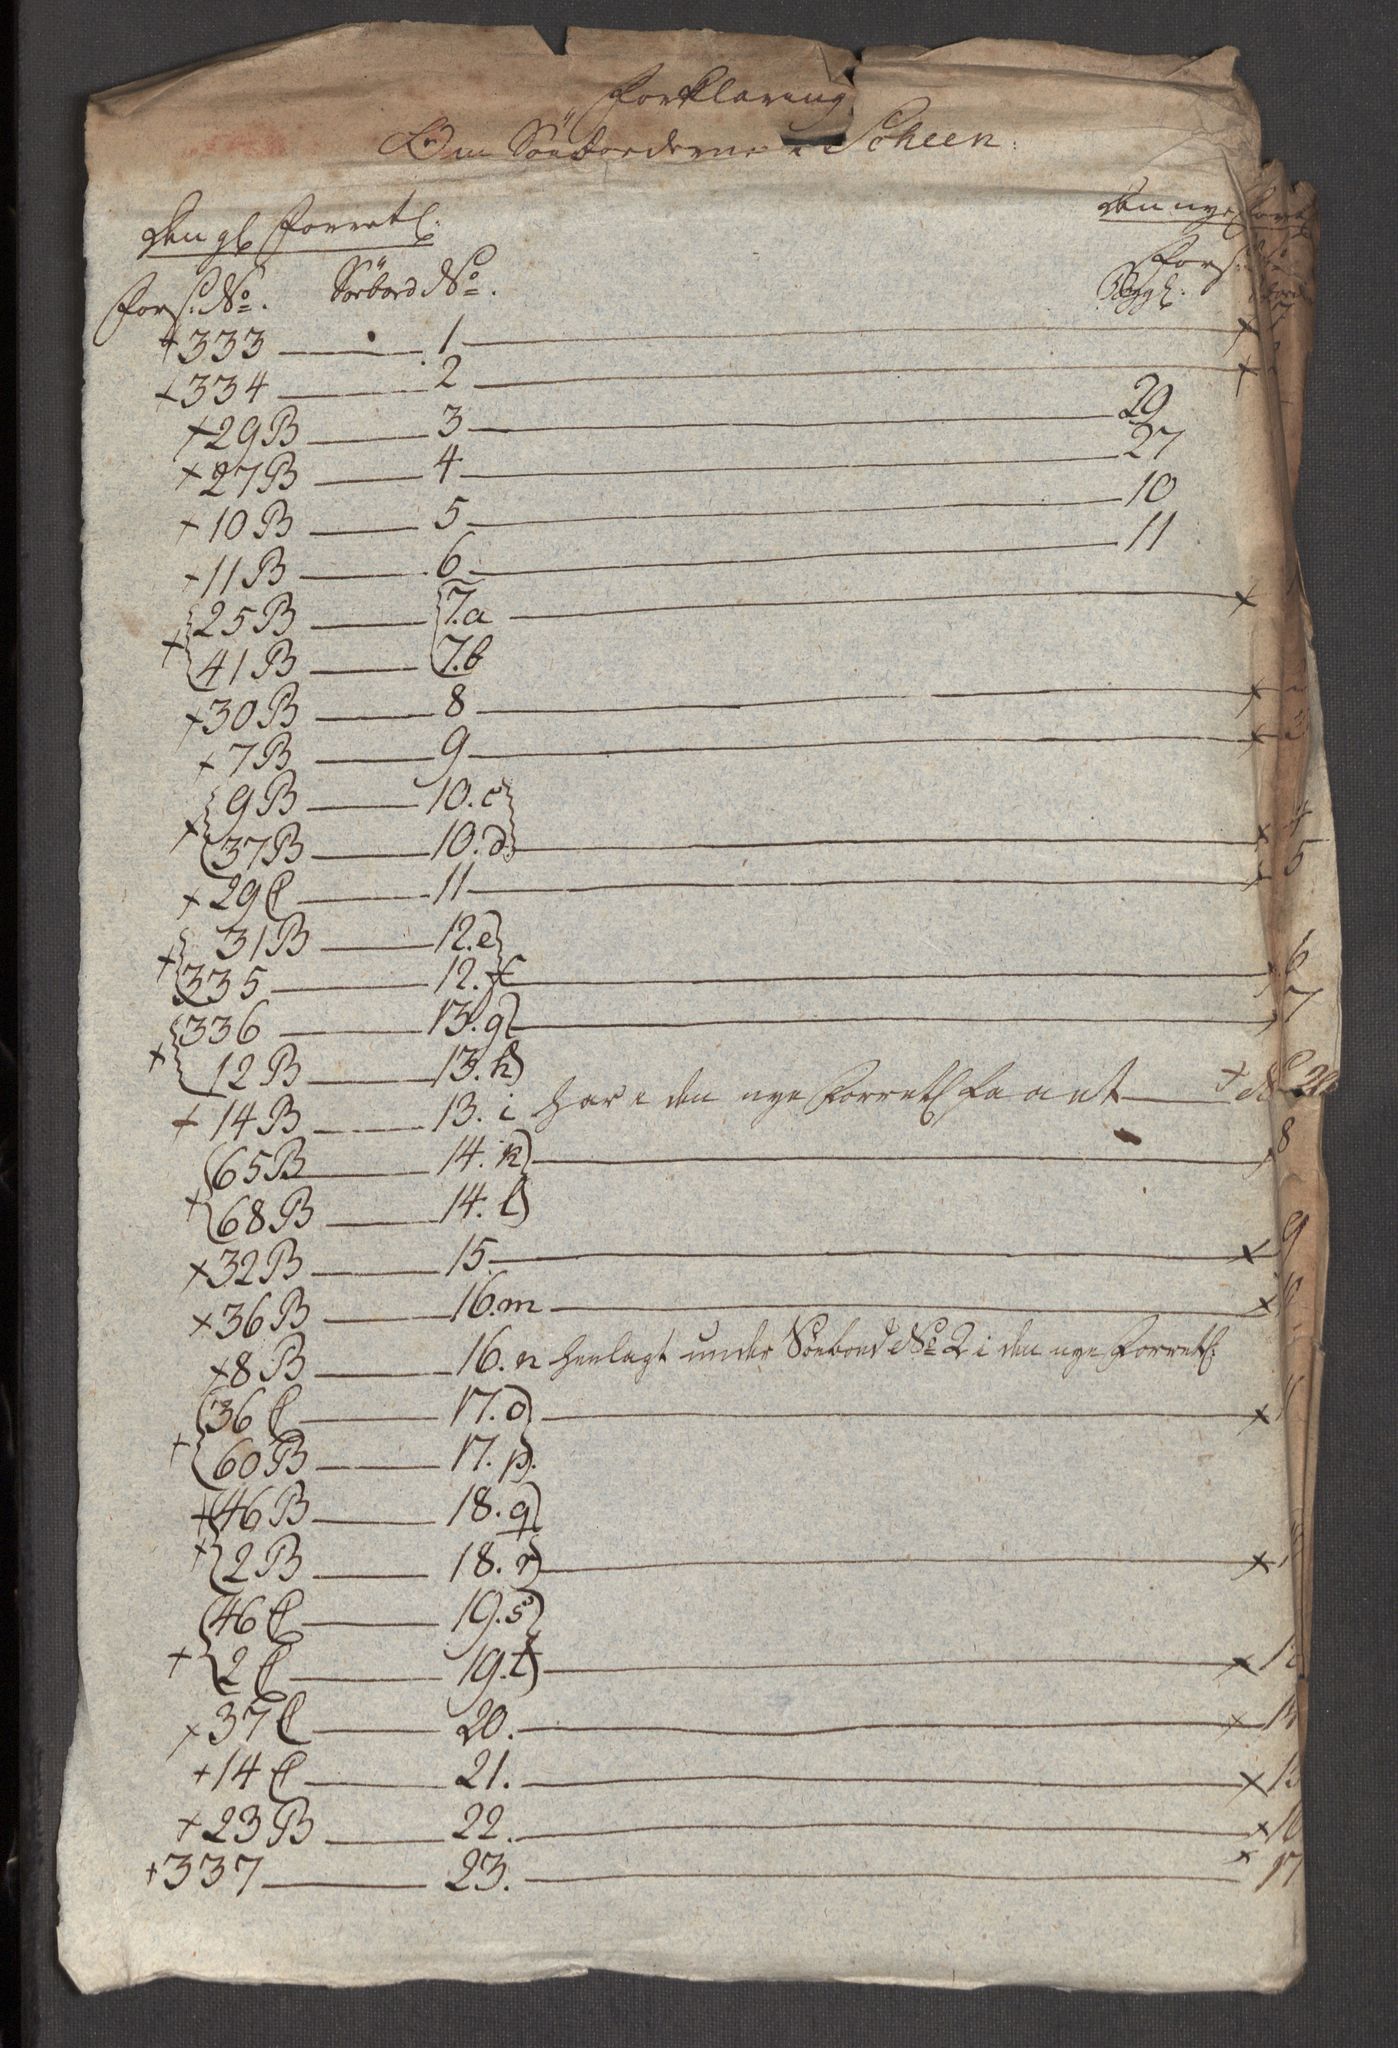 Forklaring
Om Söebordene i Scheen.
Den gl. Forretl: Den nye Forretl
Fors: No. Söebord No. Fors:
Bygl.
+ 333 1 x
+ 334 2 x
+ 29 B 3 29
+ 27 B 4 27
+ 10 B 5 10
- 11 B 6 11
25 B 7.a x
+ 41 B 7.b
+ 30 B 8 x
+ 7 B 9 x 3
9 B 10.c
+ 37 B 10.d x 4
+ 29 C 11 x 5
31 B 12.e
+ 335 12.f x 6
336 13.g x 7
+ 12 B 13.h
+ 14 B 13.i har i den nye Forretl faaet + No 20
65 B 14.k x 8
+ 68 B 14.l
+ 32 B 15. x 9
+ 36 B 16.m x
+ 8 B 16.n henlagt under Söebord No 2 i den nye Forretl:
36 C 17.o x
+ 60 B 17.p.
+ 46 B 18.q
+ 2 B 18.r x
46 C 19.s
+ 2 C 19.t x
+ 37 C 20. x
+ 14 C 21. x
+ 23 B 22. x 16
+ 337 23. x 17